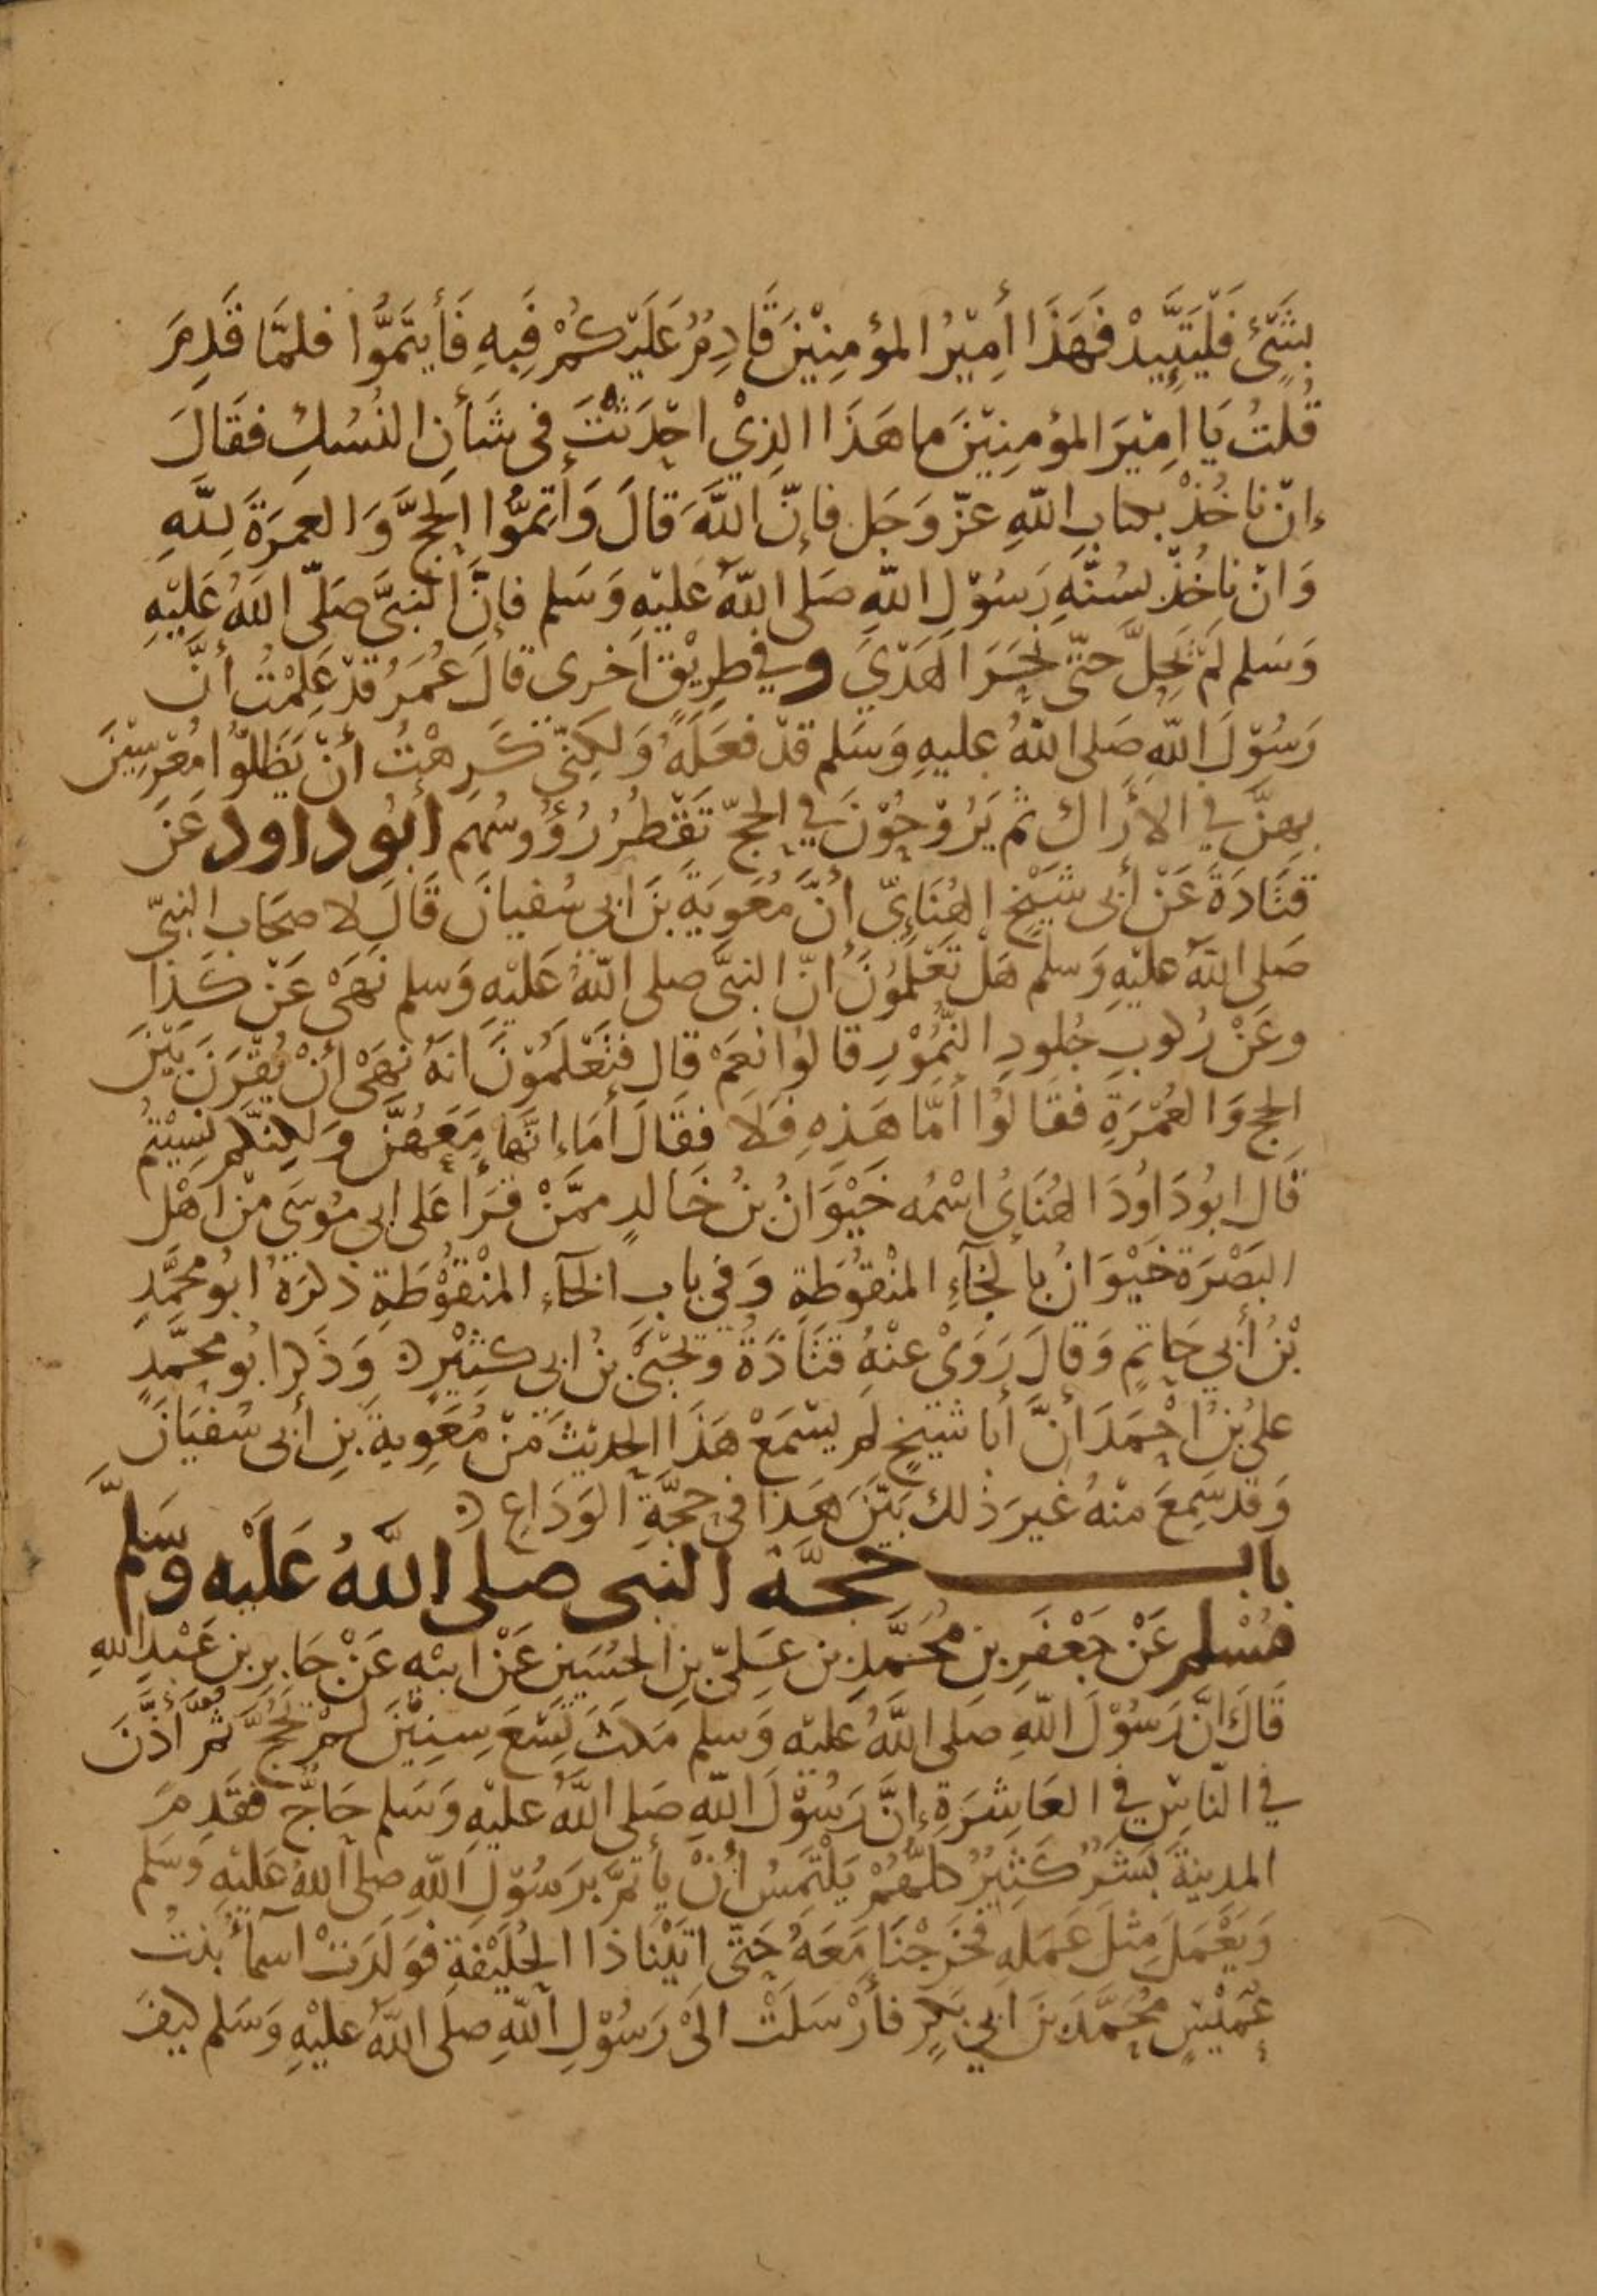 بِشَيْءٍ فَلْيَتَّئِدْ فَهَذَا أَمِيْرُ المؤمِنِيْنَ قَادِمٌ عَلَيْكُمْ فَبِهِ فَأيتَمُّوا فلمَّا قَدِمَ
قُلتُ يَا امِيْرَ المؤمِنِيْنَ ما هَذَا الذِيْ احْدَثْتَ فى شَأنِ النُسُكِ فقَالَ
إنْ ناخُذْ بكتابِ اللهِ عزّ وَجَل فإنّ اللهَ قالَ وَأَتِمُّوا الحجَّ وَالعمرَةَ لِلّهِ
وَانْ ناخُذْ بسُنَّةِ رَسُوْلِ اللهِ صَلى اللهُ عَليْهِ وَسَلم فإنَّ النبيَّ صَلّى اللهُ عَليْهِ
وَسَلم لمْ يَحِلَّ حتّى نَحَرَ الهَدْيَ وفي طرِيْقٍ اخرى قالَ عُمَرُ قدْ عَلِمْتُ أنَّ
رَسُوْلَ اللهِ صَلى اللهُ عليهِ وَسَلم قدْ فعَلَهُ وَلكِنّي كَرِهْتُ أنْ يَظَلّوا مُعْرِسِيْنَ
بهِنَّ في الأرَاك ثم يَرُوْحُوْنَ في الحجّ تَقْطُرُ رُؤُوسُهم أبُو داود عَنْ
قتَادَةَ عَنْ أبى شَيْخٍ الهُنَايّ أنَّ مُعَوِيَةَ بنَ ابى سُفيانَ قَالَ لاصحَاب النبيّ
صَلى اللهُ عليْهِ وَسلم هَلْ تَعْلَمُوْنَ انّ النبيَّ صلى اللهُ عَليْهِ وَسلم نَهَىْ عَنْ كَذَا
وعَنْ رُكوبِ جُلودِ النُّمُوْرِ قالوُا نعَمْ قال فتَعْلَمُوْنَ انهُ نهَىْ أنْ يُقْرَنَ بَيْنَ
الحج وَالعُمْرَةِ فقَالُوْا أمَّا هَذِهِ فَلا فقَالَ أمَا إنَّها مَعَهُنَّ وَلكنَّكم نَسِيْتمُ
قَال ابُو دَاوُدَ الهُنَايُ اسْمُه خَيْوَانُ بنُ خَالدٍ ممَّنْ قرَأ عَلى ابي مُوسَى منْ اهْل
البَصْرَة خَيْوَانُ بالخآءِ المنْقوُطَةِ وَفي بابِ الخآءِ المنْقوُطَةِ ذكرَهُ ابُو محمَّدٍ
بْنُ أبي حَاتمٍ وَقالَ رَوَىْ عنْهُ قتَادَةُ ويَحْيَىْ بنُ ابي كثِيْرٍ ه وَذَكرَ ابُو محمَّدٍ
عليُ بنُ احْمَدَ أنَّ أبا شيْخٍ لم يسْمَعْ هَذَا الحدِيْثَ منْ مُعَوِيةَ بنِ أبى سُفيَانَ
وَقد سَمِعَ منْهُ غيرَ ذلك بَيَّنَ هَذا فى حجَّةِ الوَدَاعِ ه
باب حَجَّة النبى صلى اللهُ عَلَيْه وَسَلمَّ
مُسْلم عَنْ جَعْفَرِ بنِ مُحَمَّدِ بنِ عَلىّ بنِ الحسَينِ عَنْ ابيْهِ عَنْ جَابرِ بنِ عَبْدِ اللهِ
قَالَ انَّ رَسُوْلَ اللهِ صَلى اللهُ عليْه وَسلم مَكثَ تِسْعَ سِنِيْنَ لمْ يَحُجَّ ثُمَّ أذَّنَ
في النّاسِ في العَاشِرَةِ إنَّ رَسُوْلَ اللهِ صَلى اللهُ عليْهِ وَسَلم حَاجٌّ فقَدِمَ
المدِينَةَ بَشَرٌ كَثِيْرٌ كلُّهُمْ يَلْتَمِسُ أنْ يأتمَّ برَسُوْلِ اللهِ صلى اللهُ عَليْهِ وَسَلم
وَيَعْمَلَ مِثلَ عَمَلهِ فخَرَجْنَا مَعَهُ حَتّى اتَيْنا ذَا الحُلَيْفَةِ فوَلَدَتْ اسمآءُ بنتُ
عُمَيْسٍ مُحَمَّدَ بنَ ابي بَكرٍ فأرْسَلَتْ الَىْ رَسُوْلِ اللهِ صلى اللهُ عليْهِ وَسَلم كيْفَ